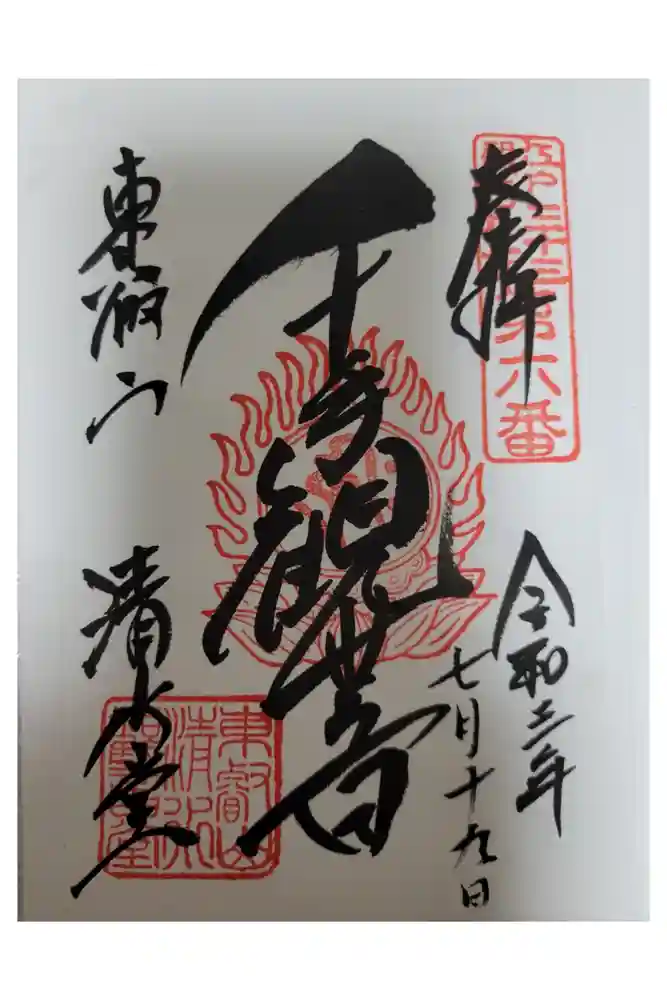 奉拝
第六番
令和三年
七月十九日
千手観世音
東叡山
清水堂
東叡山
清水
觀音堂